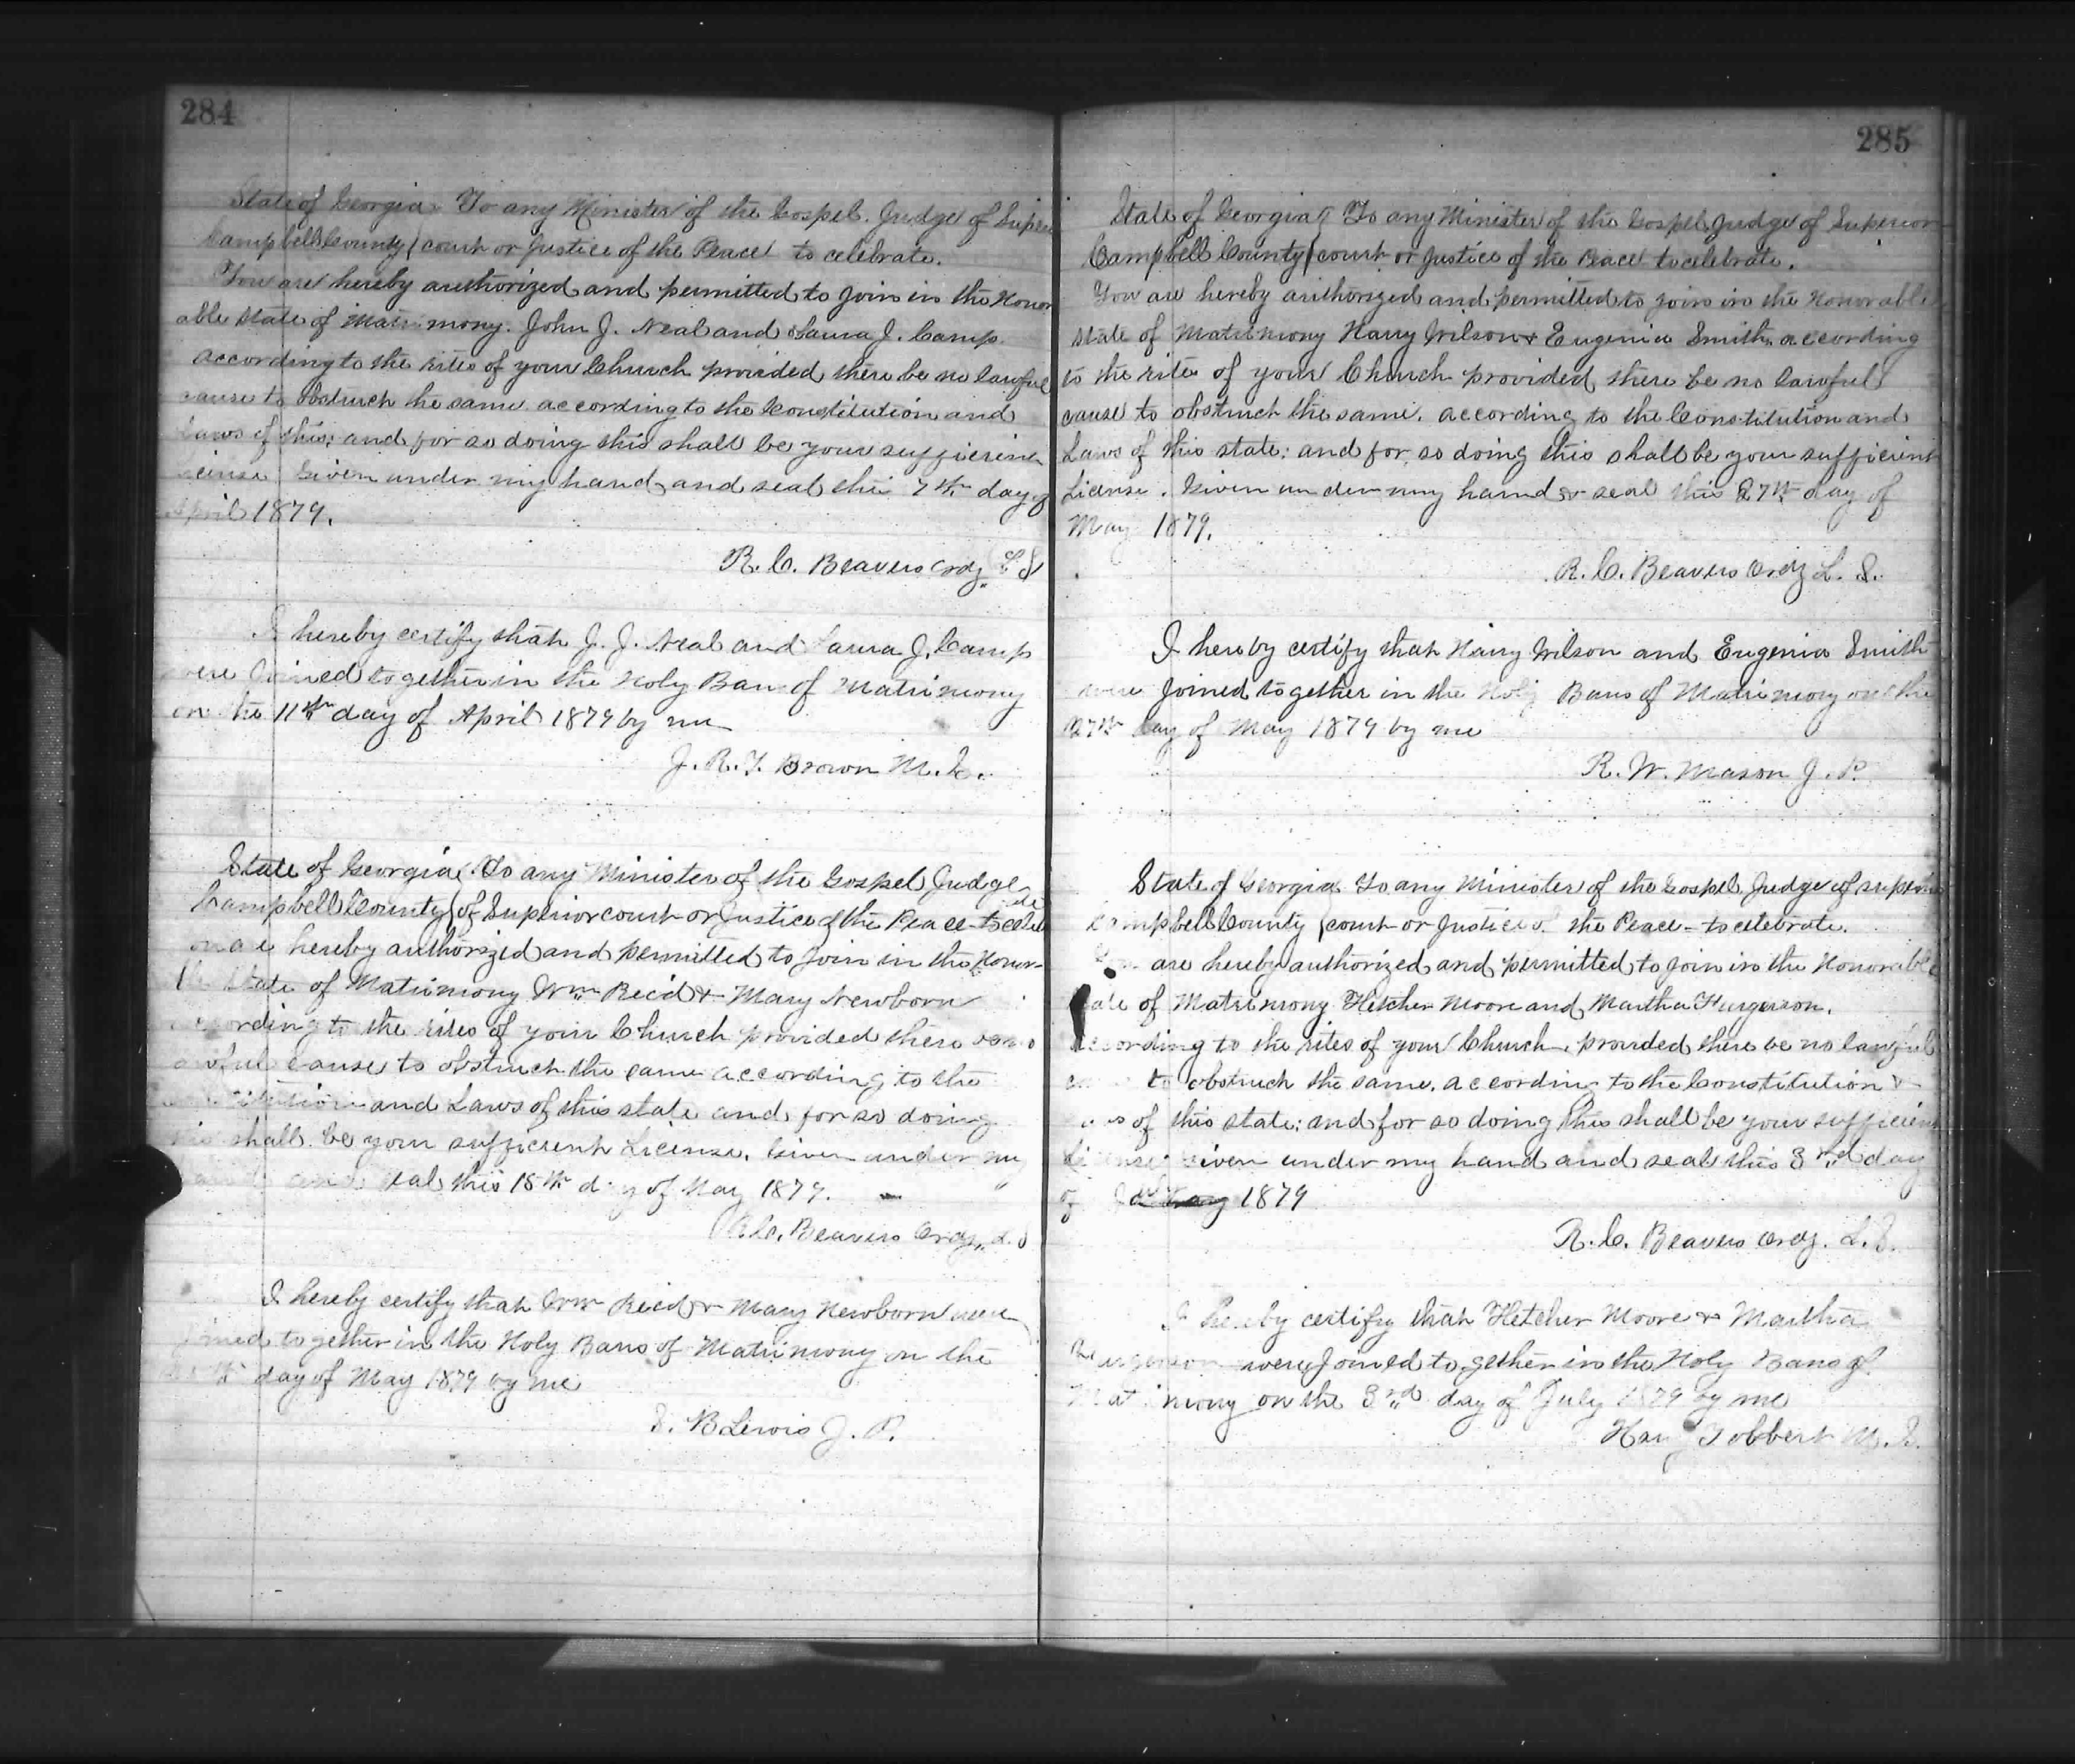 284
State of Georgia To any Minister of the Gospel. Judge of Super
Campbell County court or Justice of the Peace to celebrate.
You are hereby authorized and permitted to join in the Honor
able state of Matrimony. John J. Neal and Laura J. Camp
according to the rites of your Church provided there be no lawful
cause to obstruct the same according to the Constitution and
Laws of this; and for so doing this shall be your sufficient
License Given under my hand and seal this 7th day of
April 1879.
R. C. Beavers Ordy L S
I hereby certify that J. J. Neal and Laura J. Camp
were joined together in the Holy Bans of Matrimony
on the 11th day of April 1879 by me
J. R. T. Brown M. G.
State of Georgia To any Minister of the Gospel Judge
Campbell County of Superior court or Justice of the Peace to cele
are hereby authorized and permitted to join in the Honor-
State of Matrimony Wm Reid & Mary Newborn
according to the rites of your Church provided there be no
lawful cause to obstruct the same according to the
Constitution and Laws of this state and for so doing
this shall be your sufficient License. Given under my
hand and seal this 15th day of May 1879.
R. C. Beavers Ordy. L. S
I hereby certify that Wm Reid & Mary Newborn were
joined together in the Holy Bans of Matrimony on the
day of May 1879 by me
S. B Lewis J. P.
285
State of Georgia To any Minister of the Gospel Judge of Superior
Campbell County court or Justice of the Peace to celebrate.
You are hereby authorized and permitted to join in the Honorable
state of Matrimony Harry Wilson & Eugenia Smith according
to the rite of your Church provided there be no lawful
cause to obstruct the same. according to the Constitution and
Laws of this state: and for so doing this shall be your sufficient
License. Given under my hand & seal this 27th day of
May 1879.
R. C. Beavers Ordy L. S.
I hereby certify that Harry Wilson and Eugenia Smith
were joined together in the Holy Bans of Matrimony on the
27th day of May 1879 by me
R. W. Mason J. P.
State of Georgia To any Minister of the Gospel Judge of superior
Campbell County court or Justice of the Peace - to celebrate.
You are hereby authorized and permitted to join in the Honorable
state of Matrimony Fletcher Moore and Martha Furgerson.
according to the rites of your Church, provided there be no lawful
to obstruct the same. according to the Constitution &
Laws of this state: and for so doing this shall be your sufficient
License; Given under my hand and seal this 3rd day
of 1879
R. C. Beavers Ordy. L. S.
I hereby certify that Fletcher Moore & Martha
Furgerson were joined together in the Holy Bans of
Matrimony on the 3rd day of July 1879 by me
Tobbert M. G.